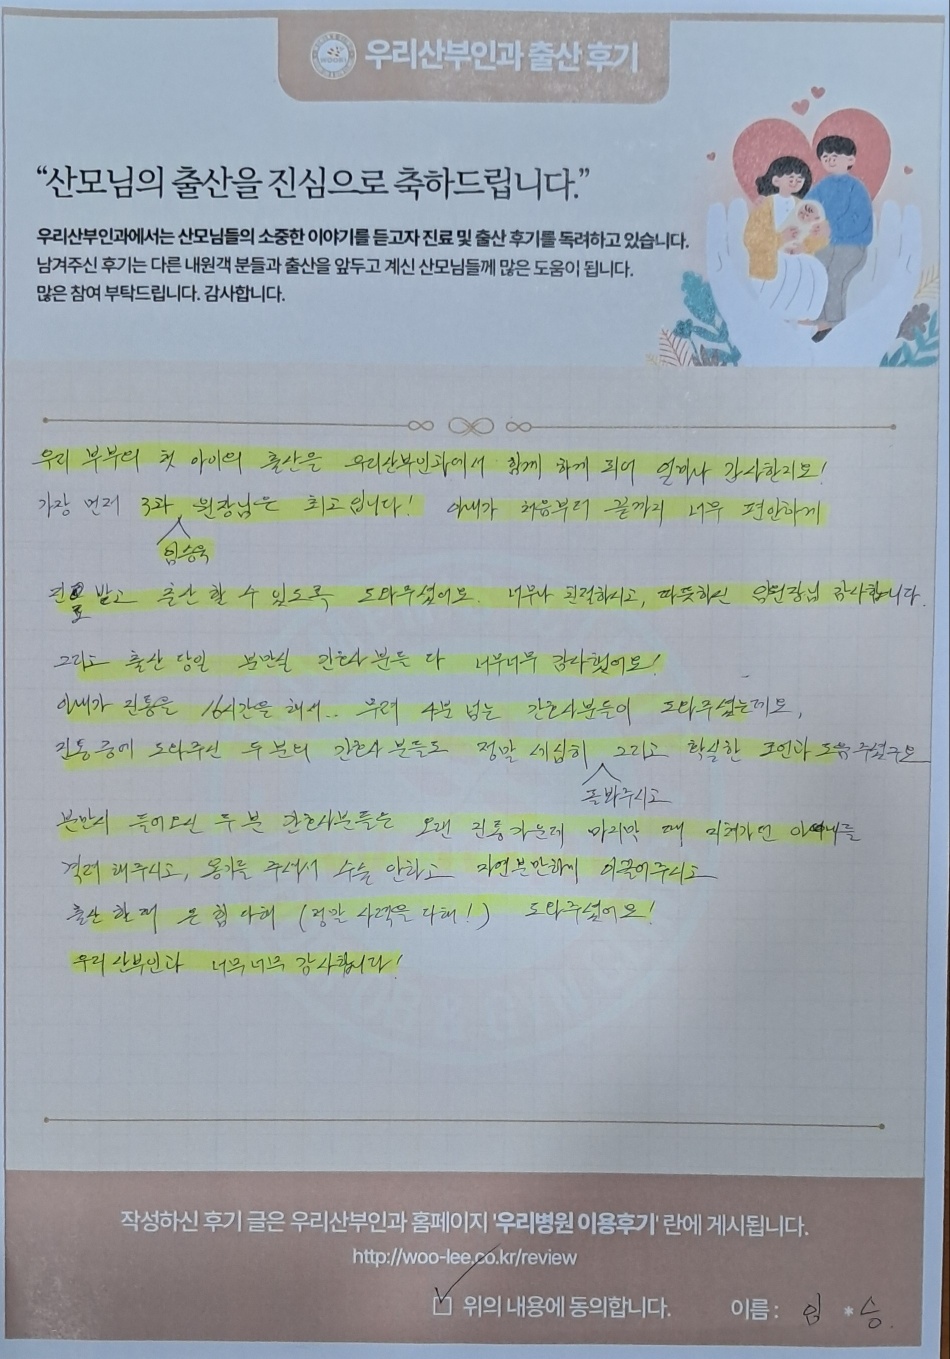 우리산부인과 출산 후기
“산모님의 출산을 진심으로 축하드립니다.”
우리산부인과에서는 산모님들의 소중한 이야기를 듣고자 진료 및 출산 후기를 독려하고 있습니다.
남겨주신 후기는 다른 내원객 분들과 출산을 앞두고 계신 산모님들께 많은 도움이 됩니다.
많은 참여 부탁드립니다. 감사합니다.
우리 부부의 첫 아이의 출산을 우리산부인과에서 함께 하게 되어 얼마나 감사한지요!
가장 먼저 3과 원장님은 최고입니다! 아내가 처음부터 끝까지 너무 편안하게
임승욱
진료 받고 출산 할 수 있도록 도와주셨어요. 너무나 친절하시고, 따뜻하신 임원장님 감사합니다.
그리고 출산 당일 분만실 간호사분들 다 너무너무 감사했어요!
아내가 진통을 16시간을 해서.. 무려 4분 넘는 간호사분들이 도와주셨는데요,
진통중에 도와주신 두분의 간호사분들도 정말 세심히 그리고 확실한 조언과 도움주셨구요
돌봐주시고
분만시 들어오신 두분 간호사분들은 오랜 진통가운데 마지막 때 지쳐가던 아내를
격려 해주시고, 용기를 주셔서 수술 안하고 자연분만하게 이끌어주시고
출산 할때 온 힘 다해 (정말 사력을 다해!) 도와주셨어요!
우리산부인과 너무너무 감사합니다!
작성하신 후기 글은 우리산부인과 홈페이지 '우리병원 이용후기' 란에 게시됩니다.
http://woo-lee.co.kr/review
위의 내용에 동의합니다. 이름 : 임 * 승